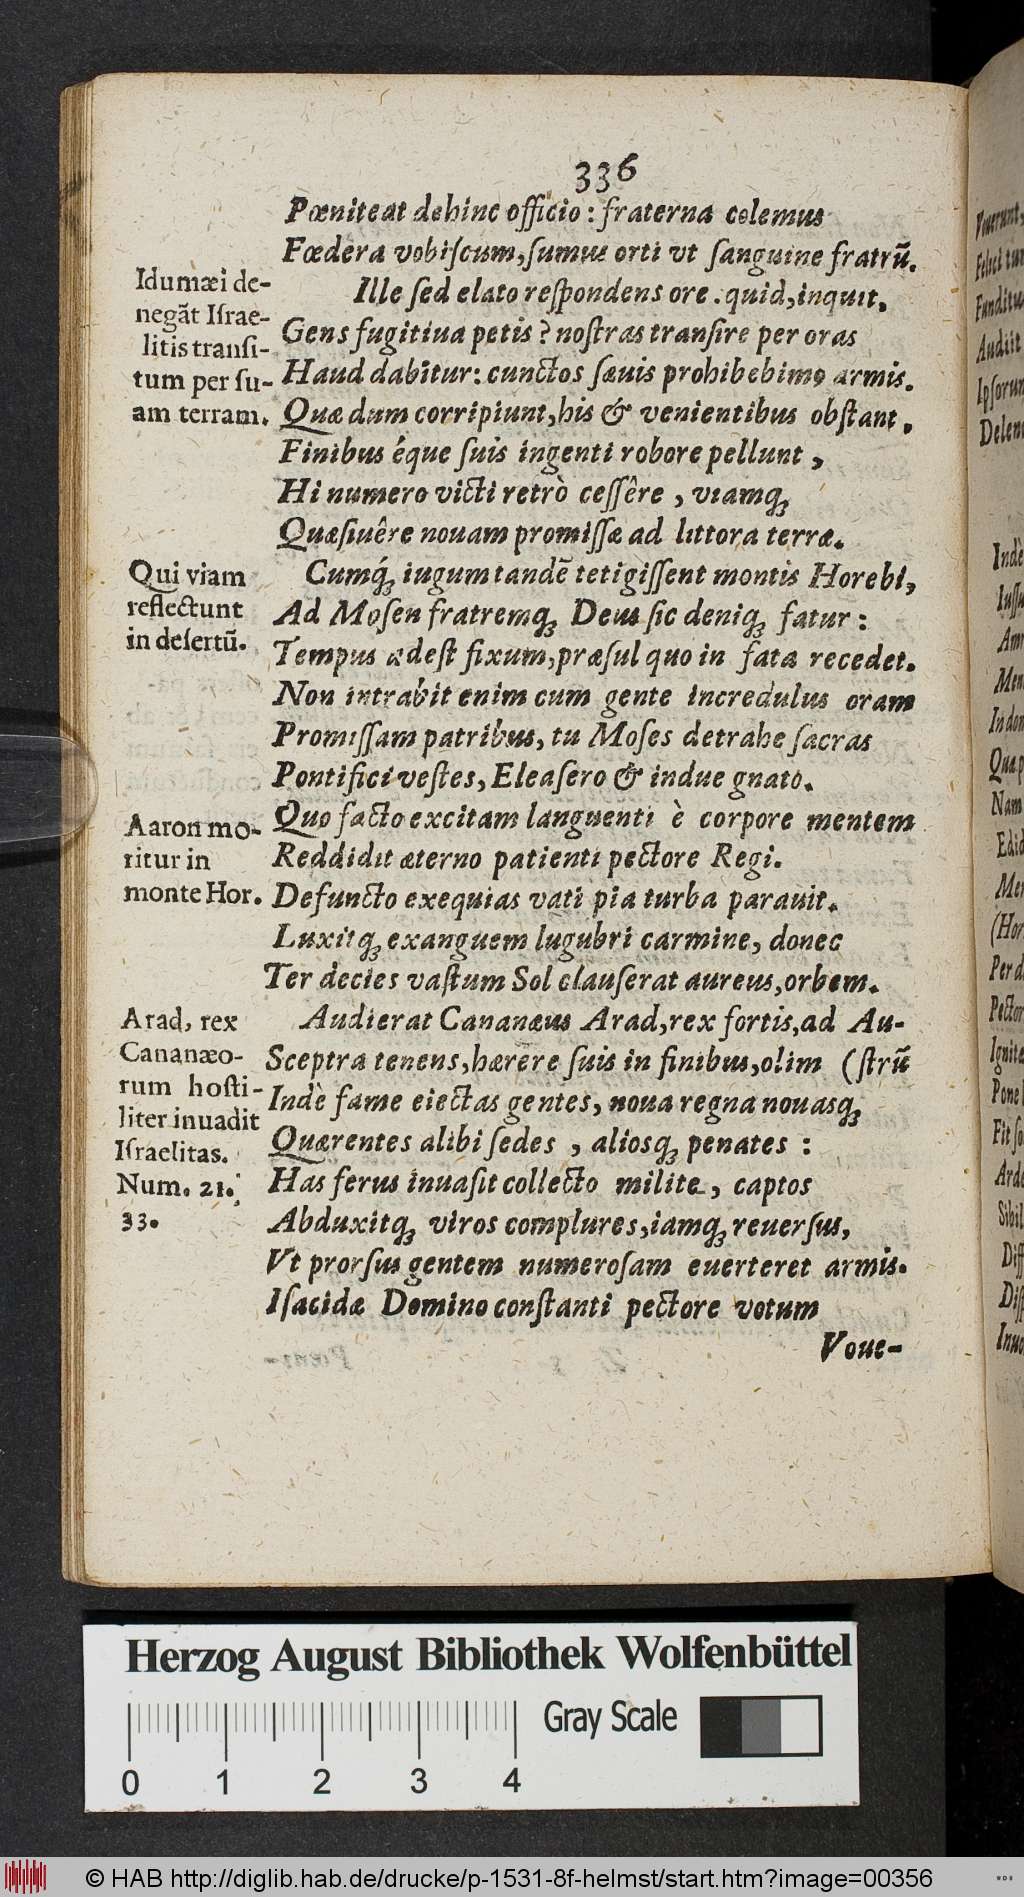 336
Pœniteat dehinc officio : fraterna colemus
Fœdera vobiſcum, ſumus orti vt ſanguine fratrū.
Idumæi de-
negãt Iſrae-
litis tranſi-
tum per ſu-
am terram.
Ille ſed elato reſpondens ore . quid, inquit,
Gens fugitiua petis ? noſtras tranſire per oras
Haud dabitur: cunctos ſæuis prohibebimꝰ armis.
Quæ dum corripiunt, his & venientibus obſtant,
Finibus éque ſuis ingenti robore pellunt ,
Hi numero victi retrò ceſſêre , viamq;
Quæſiuêre nouam promiſſæ ad littora terræ.
Qui viam
reflectunt
in deſertũ.
Cumq́; iugum tandē tetigiſſent montis Horebi,
Ad Moſen fratremq; Deus ſic deniq; fatur :
Tempus adeſt fixum, præſul quo in fata recedet.
Non intrabit enim cum gente incredulus oram
Promiſſam patribus, tu Moſes detrahe ſacras
Pontifici veſtes, Eleaſero & indue gnato.
Aaron mo-
ritur in
monte Hor.
Quo facto excitam languenti è corpore mentem
Reddidit æterno patienti pectore Regi.
Defuncto exequias vati pia turba parauit.
Luxitq; exanguem lugubri carmine, donec
Ter decies vaſtum Sol clauſerat aureus, orbem.
Arad, rex
Cananæo-
rum hoſti-
liter inuadit
Iſraelitas.
Num. 21.
33.
Audierat Cananæus Arad, rex fortis, ad Au-
Sceptra tenens, hærere ſuis in finibus, olim (ſtrũ
Indè fame eiectas gentes, noua regna nouasq;
Quærentes alibi ſedes , aliosq; penates :
Has ferus inuaſit collecto milite , captos
Abduxitq; viros complures, iamq; reuerſus,
Vt prorſus gentem numeroſam euerteret armis.
Iſacidæ Domino conſtanti pectore votum
Voue-
Herzog August Bibliothek Wolfenbüttel
Gray Scale
0 1 2 3 4
© HAB http://diglib.hab.de/drucke/p-1531-8f-helmst/start.htm?image=00356